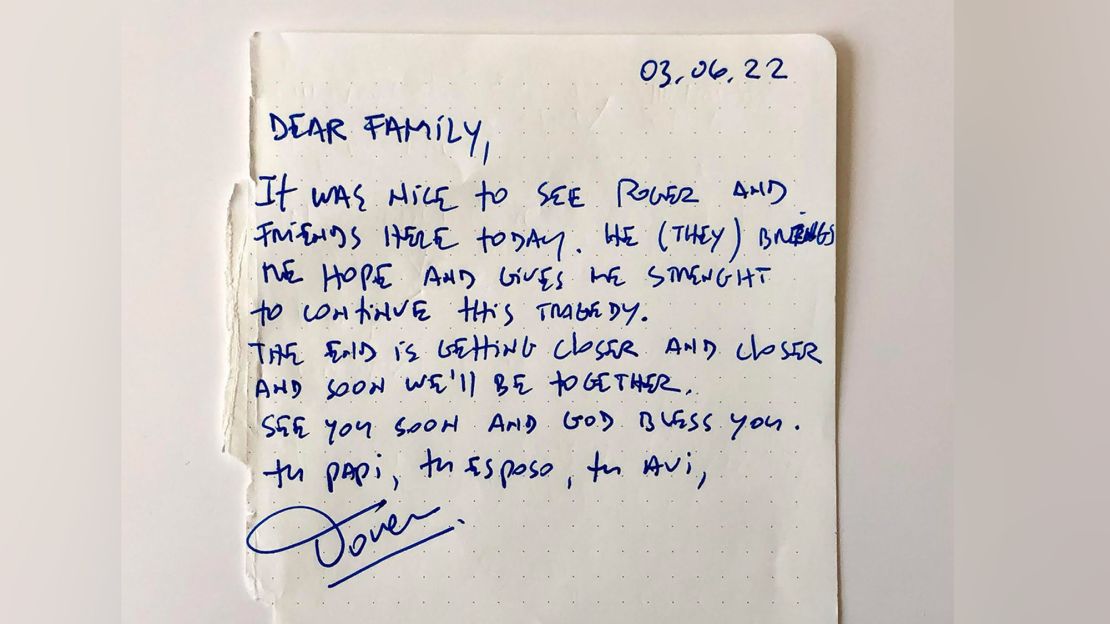 03.06.22
DEAR FAMILY,
It WAS NICE to SEE ROGER AND
FRIENDS HERE TODAY. HE (THEY) BRINGS
ME HOPE AND GIVES ME STRENGHT
to CONTINUE tHIS TRAGEDY.
THE END IS GETTING CLOSER AND CLOSER
AND SOON WE'll BE TOGETHER.
SEE YOU SOON AND GOD BLESS YOU.
tu PAPi, tu ESPOSO, tu AVi,